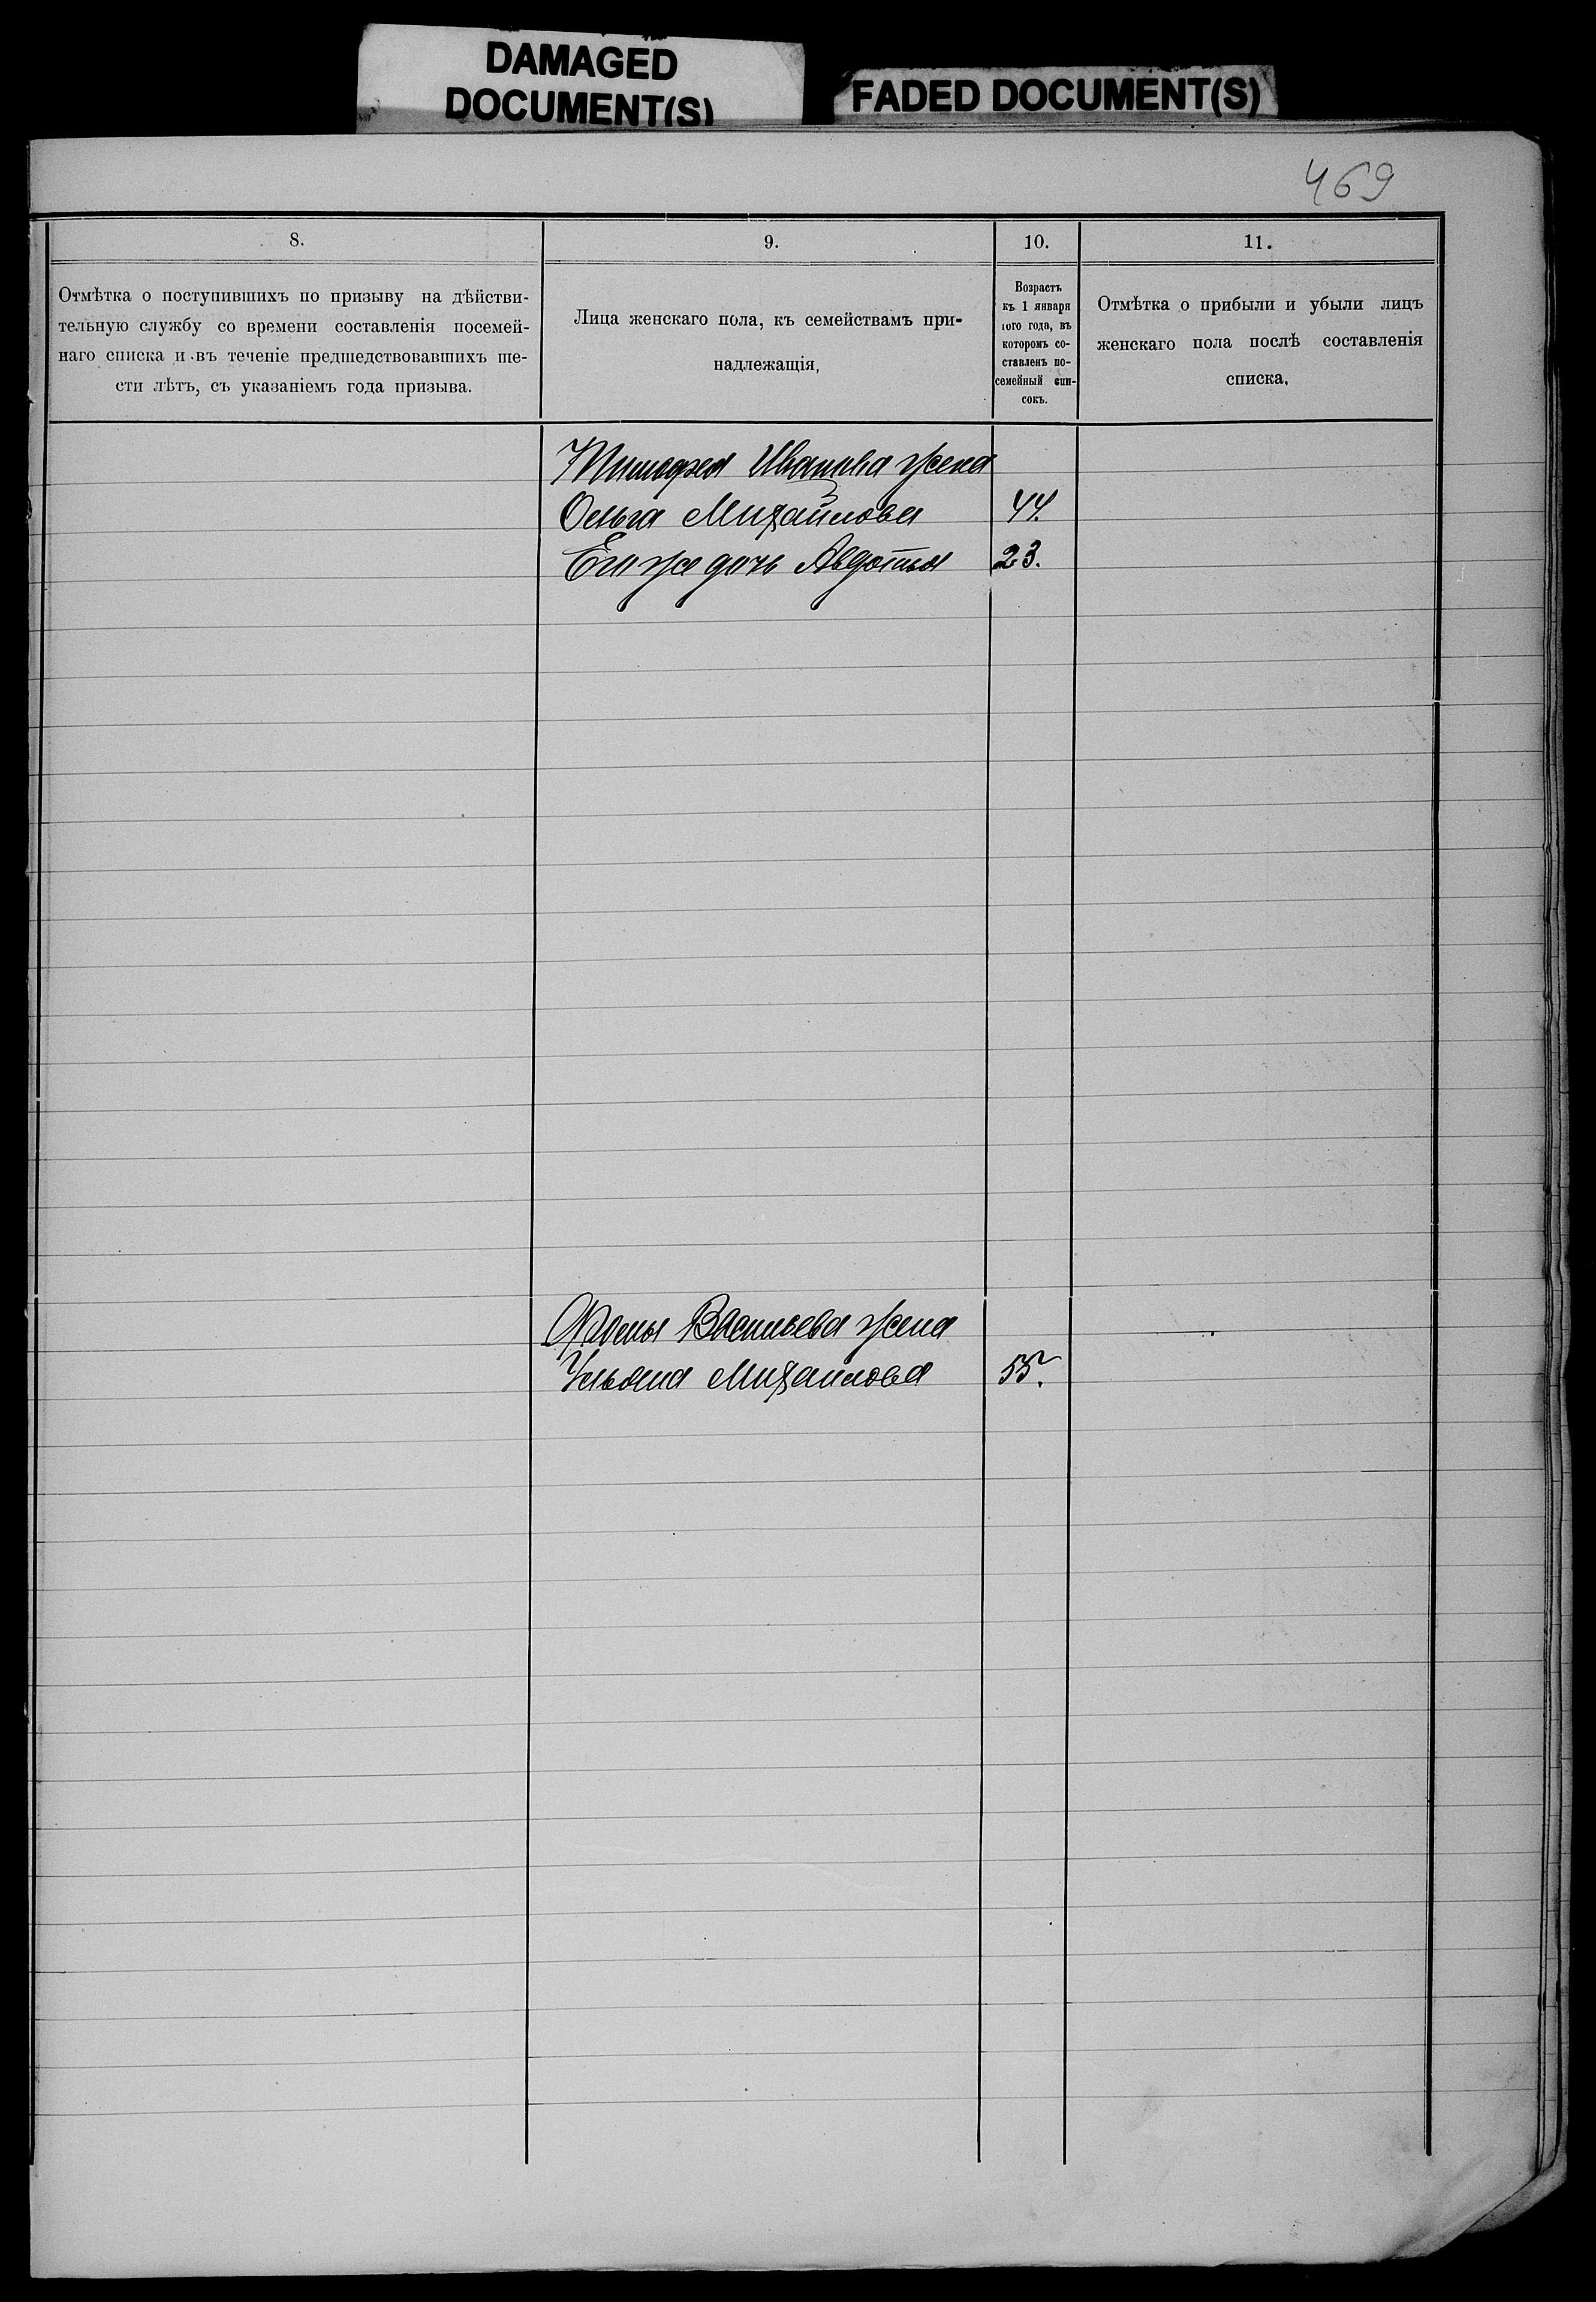 DAMAGED
DOCUMENT(S)
FADED DOCUMENT(S)
469
8.
9.
10.
11.
Отмѣтка о поступившихъ по призыву на дѣйстви-
тельную службу со времени составленія посемей-
наго списка и въ теченіе предшедствовавшихъ ше-
сти лѣтъ, съ указаніемъ года призыва.
Лица женскаго пола, къ семействамъ при-
надлежащія,
Возрастъ
къ 1 января
того года, въ
которомъ со-
ставленъ по-
семейный спи-
сокъ.
Отмѣтка о прибыли и убыли лицъ
женскаго пола послѣ составленія
списка,
Тимофея Иванова жена
Ольга Михайлова 44.
Его же дочь Авдотья 23.
Васильева жена
Ульяна Михайлова 55.